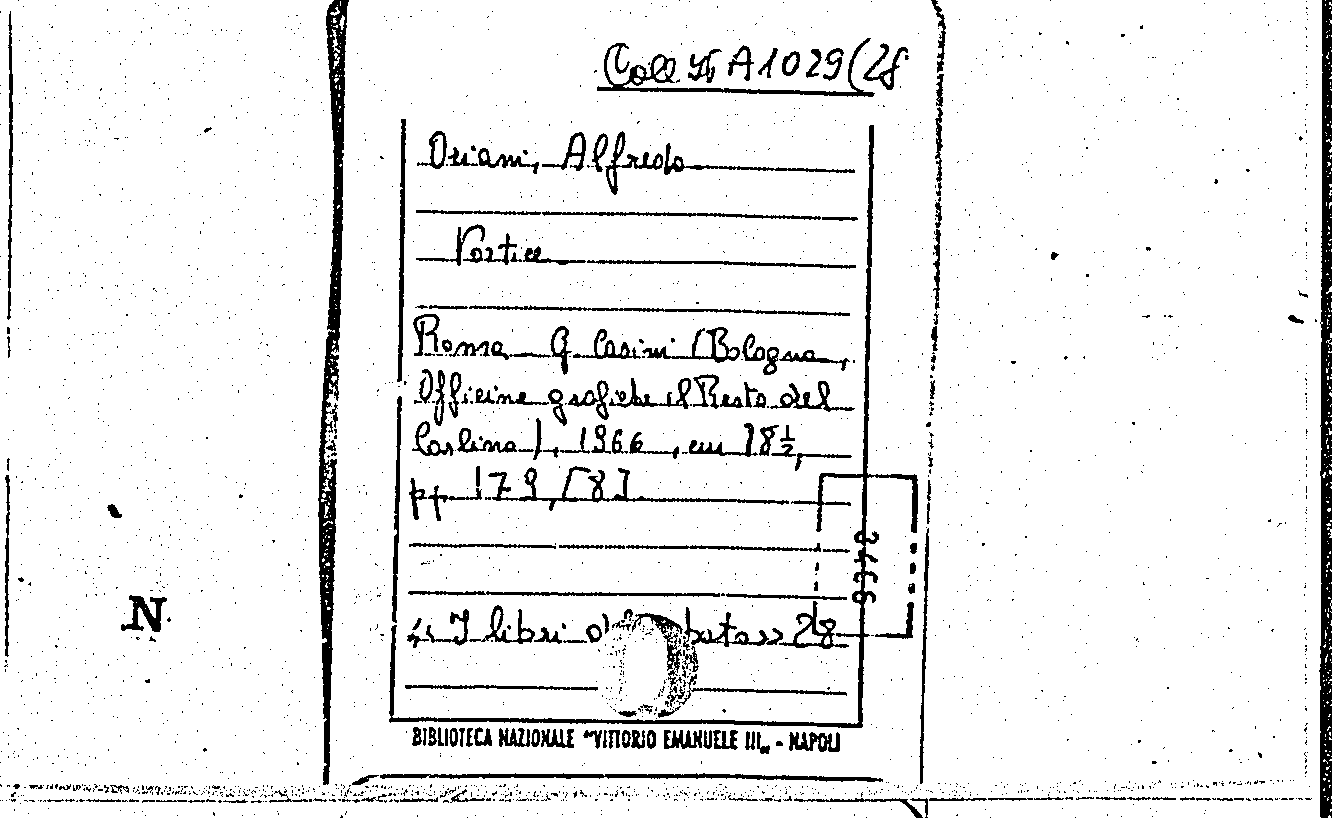 Coll. It. A 1029(28
Oriani, Alfredo
Vortice
Roma G. Casini (Bologna,
Officine grafiche il Resto del
Carlino), 1966, cm 18½,
pp. 179, [8]
3466
I libri 28
N
BIBLIOTECA NAZIONALE "VITTORIO EMANUELE III„ - NAPOLI